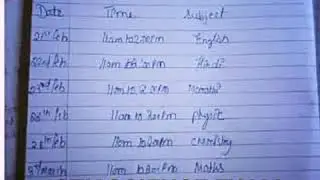 Date Time Subject
21st Feb 11am to 2:00PM English
22nd Feb 11am to 2:00PM Hindi
23rd Feb 11am to 2:00PM
Feb 11am to 2:00PM physic
Feb 11am to 2:00PM chemistry
3rd March 11am to 2:00PM Maths